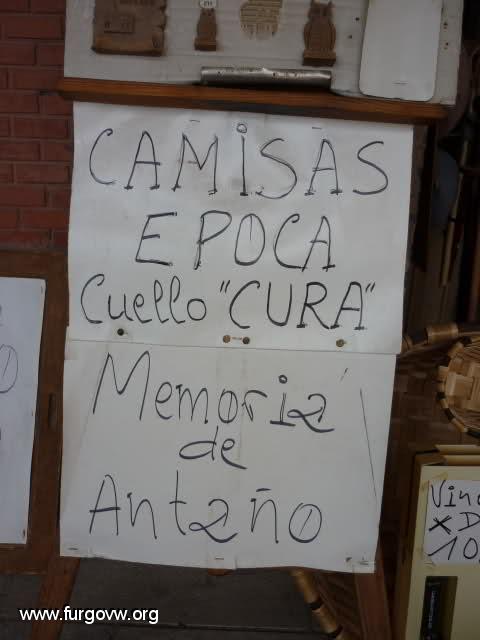 CAMISAS
EPOCA
Cuello "CURA"
Memoria
de
Antaño
Vino
x D
10
www.furgovw.org